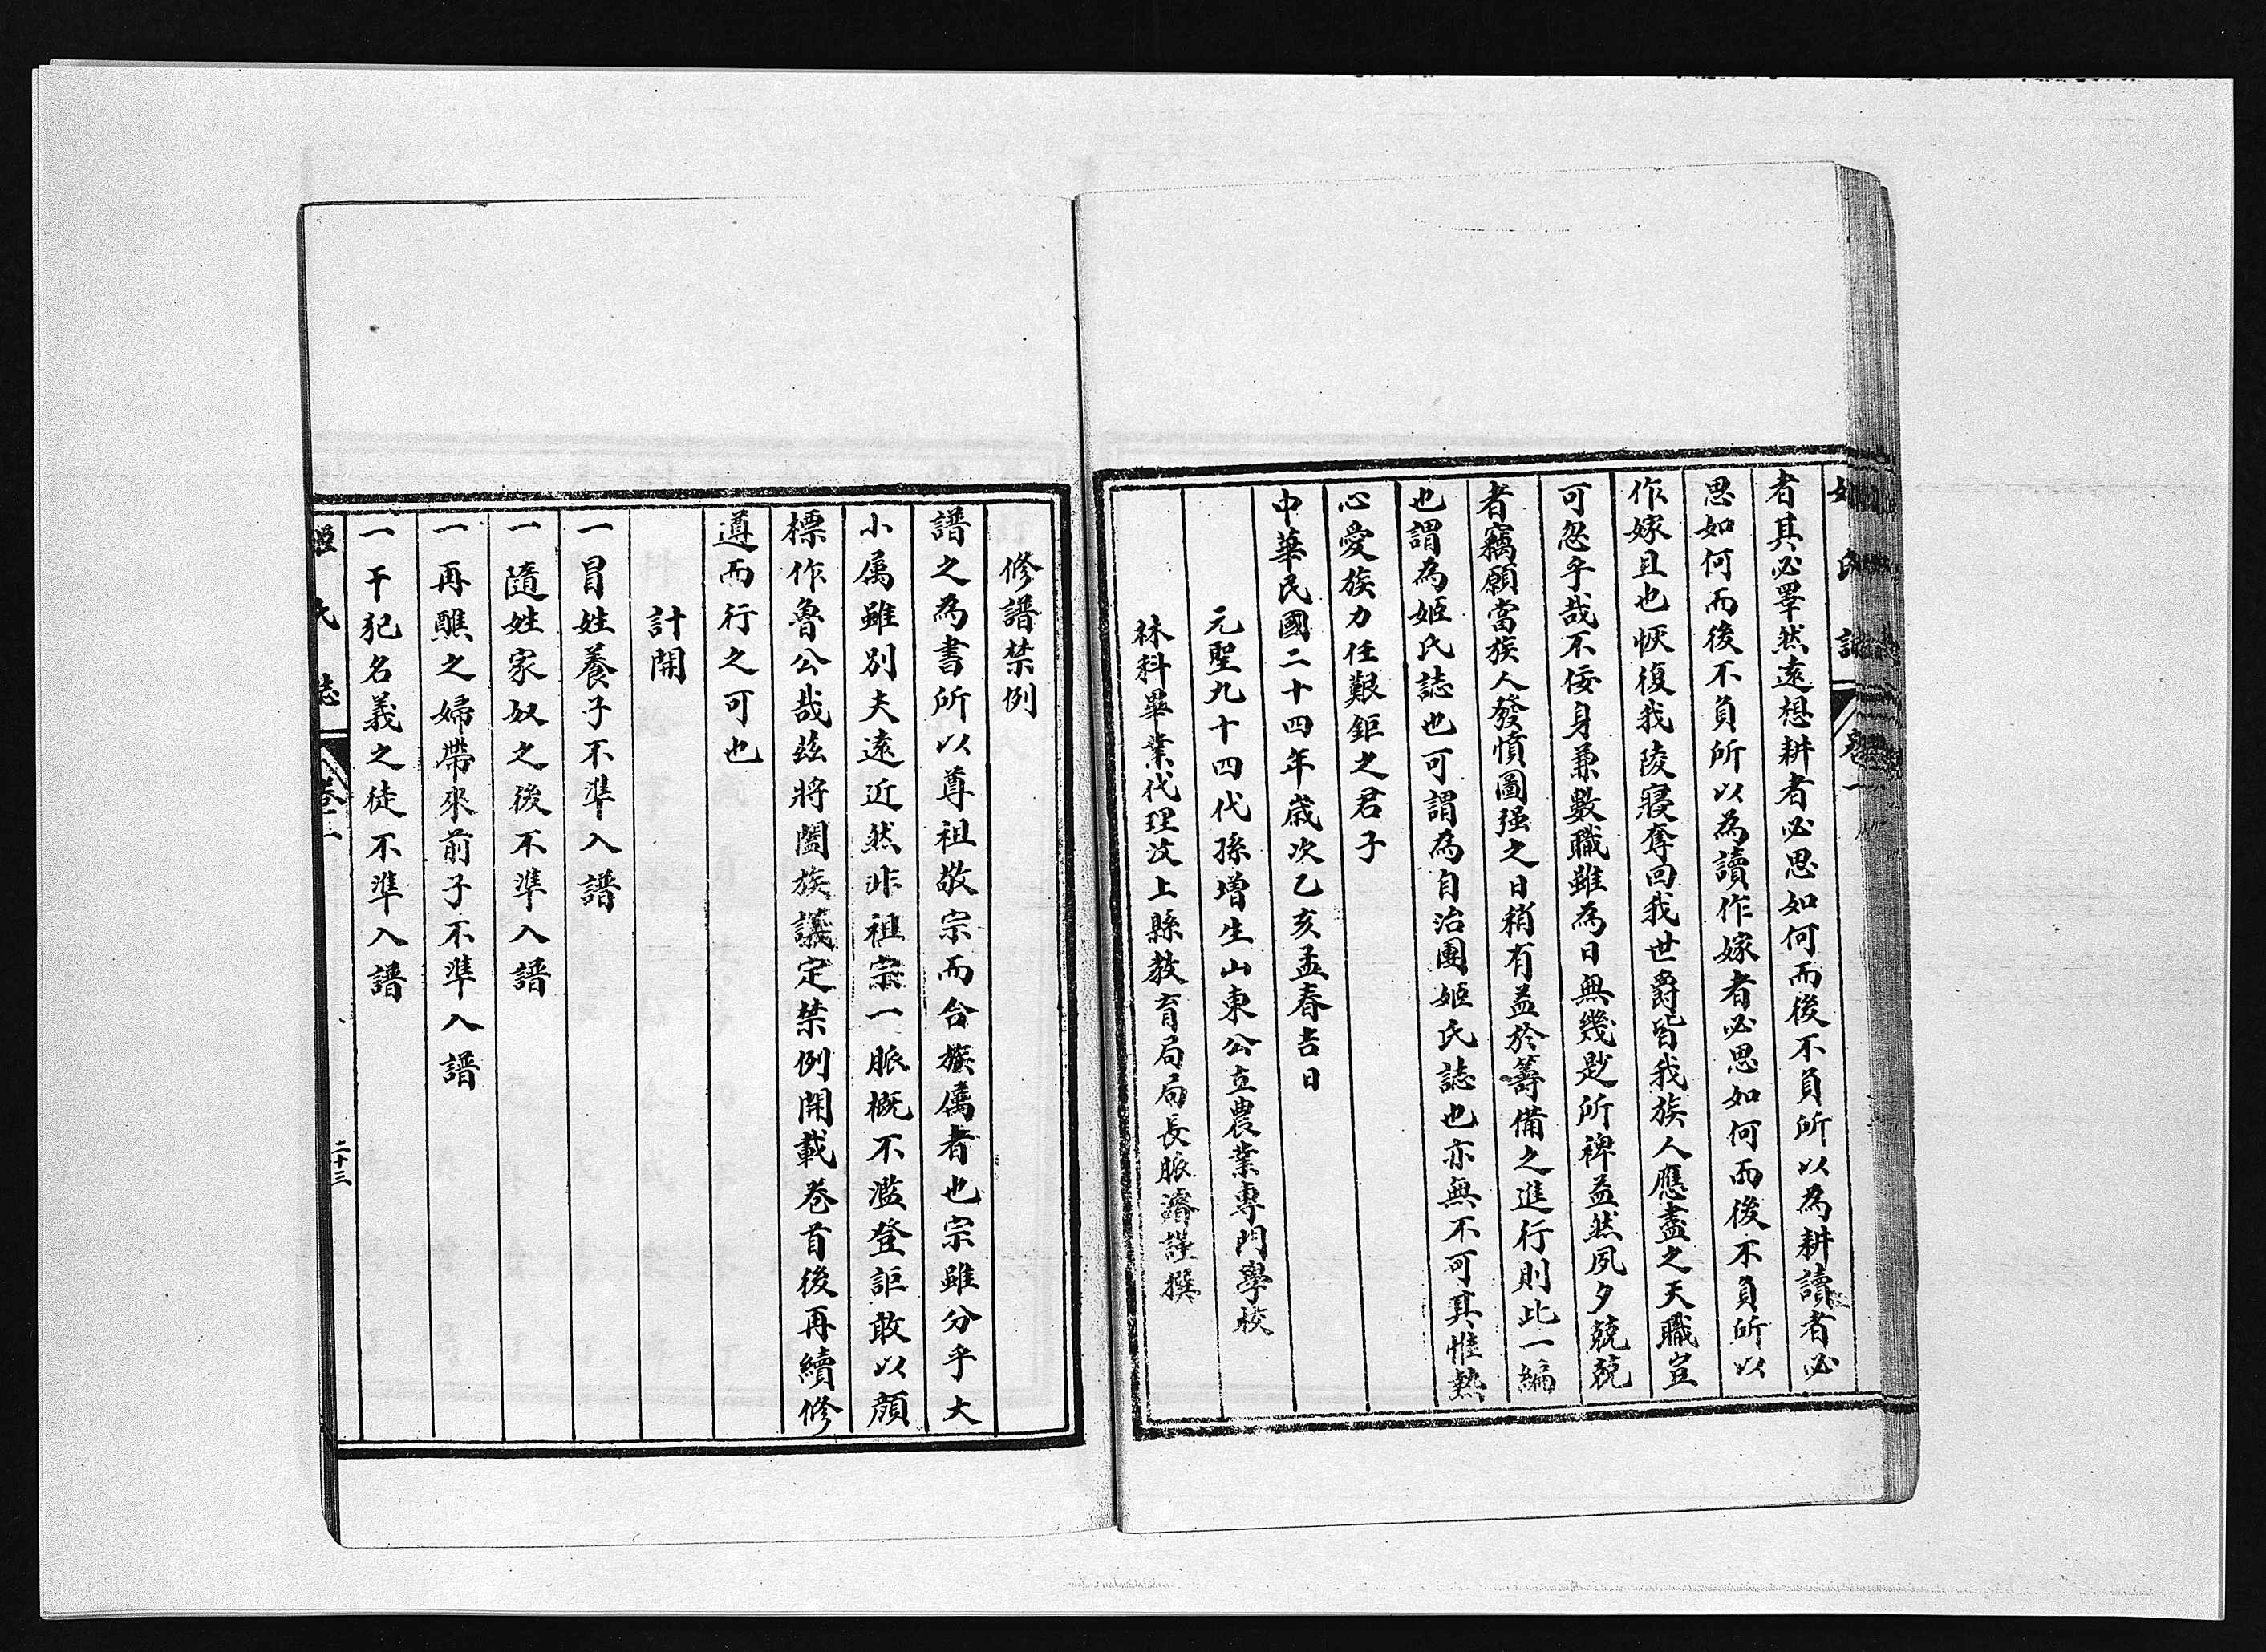 姬氏誌 卷一
者其必罩然遠想耕者必思如何而後不負所以為耕讀者必
思如何而後不負所以為讀作嫁者必思如何而後不負所以
作嫁且也恢復我陵寢奪回我世爵皆我族人應盡之天職豈
可忽乎哉不佞身兼數職雖為日無幾尟所裨益然夙夕兢兢
者竊願當族人發憤圖强之日稍有益於籌備之進行則此一編
也謂為姬氏誌也可謂為自治團姬氏誌也亦無不可其惟熱
心愛族力任艱鉅之君子
中華民國二十四年歲次乙亥孟春吉日
元聖九十四代孫增生山東公立農業專門學校
林科畢業代理汶上縣教育局局長脈濬謹撰
修譜禁例
譜之為書所以尊祖敬宗而合族屬者也宗雖分乎大
小屬雖別夫遠近然非祖宗一脈概不濫登詎敢以顏
標作魯公哉茲將闔族議定禁例開載卷首後再續修
遵而行之可也
計開
一冒姓養子不準入譜
一隨姓家奴之後不準入譜
一再醮之婦帶來前子不準入譜
一干犯名義之徒不準入譜
姬氏誌 卷一 二十三